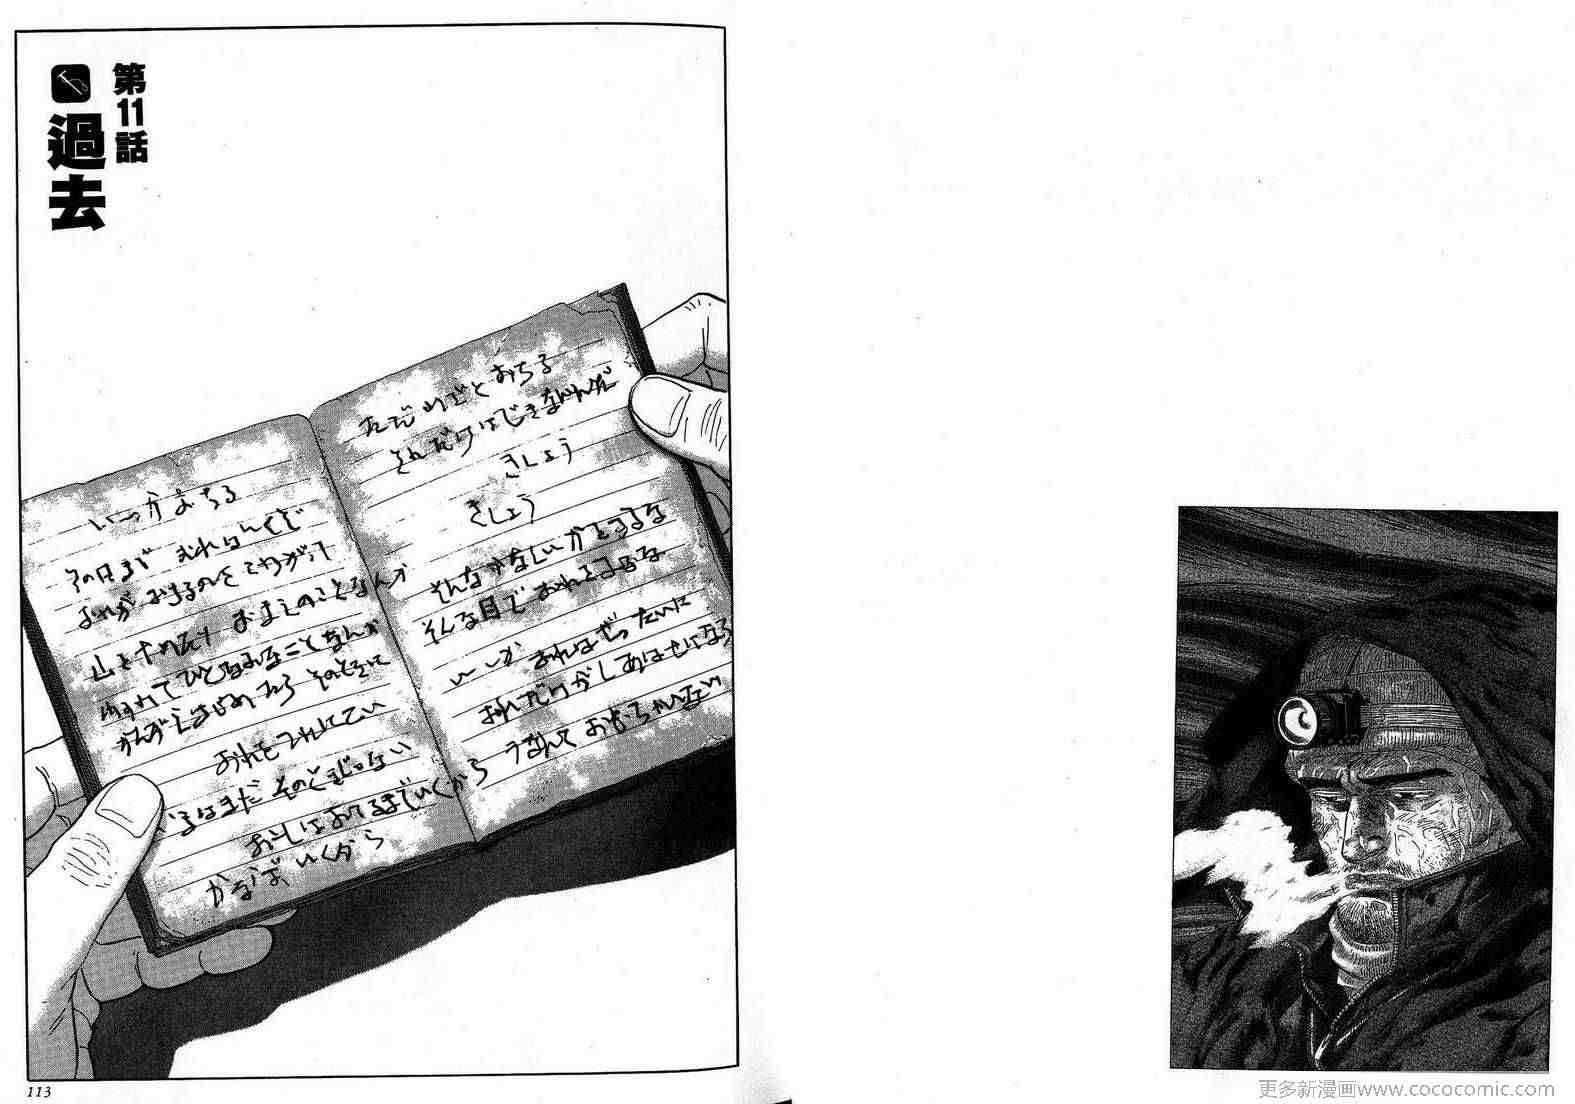 第11話
過去
いつかおちる
その日まで
おれが おちるのを こわがって
山を やめたり おまえのことなんか
わすれて ひとなみなことなんか
かんがえはじめたら そのときは
おれを つれにこい
いまはまだ そのときじゃない
おそしはおそるまでいくから
かならず いくから
ただ わざと おちる
それだけは できないんだ
きしょう
きしょう
そんな かなしい かおをするな
そんな目で おれを みるな
いいか おれはぜったいに
おれだけがしあわせになろ
うなんて おもっちゃいない
113
更多新漫画www.cococomic.com